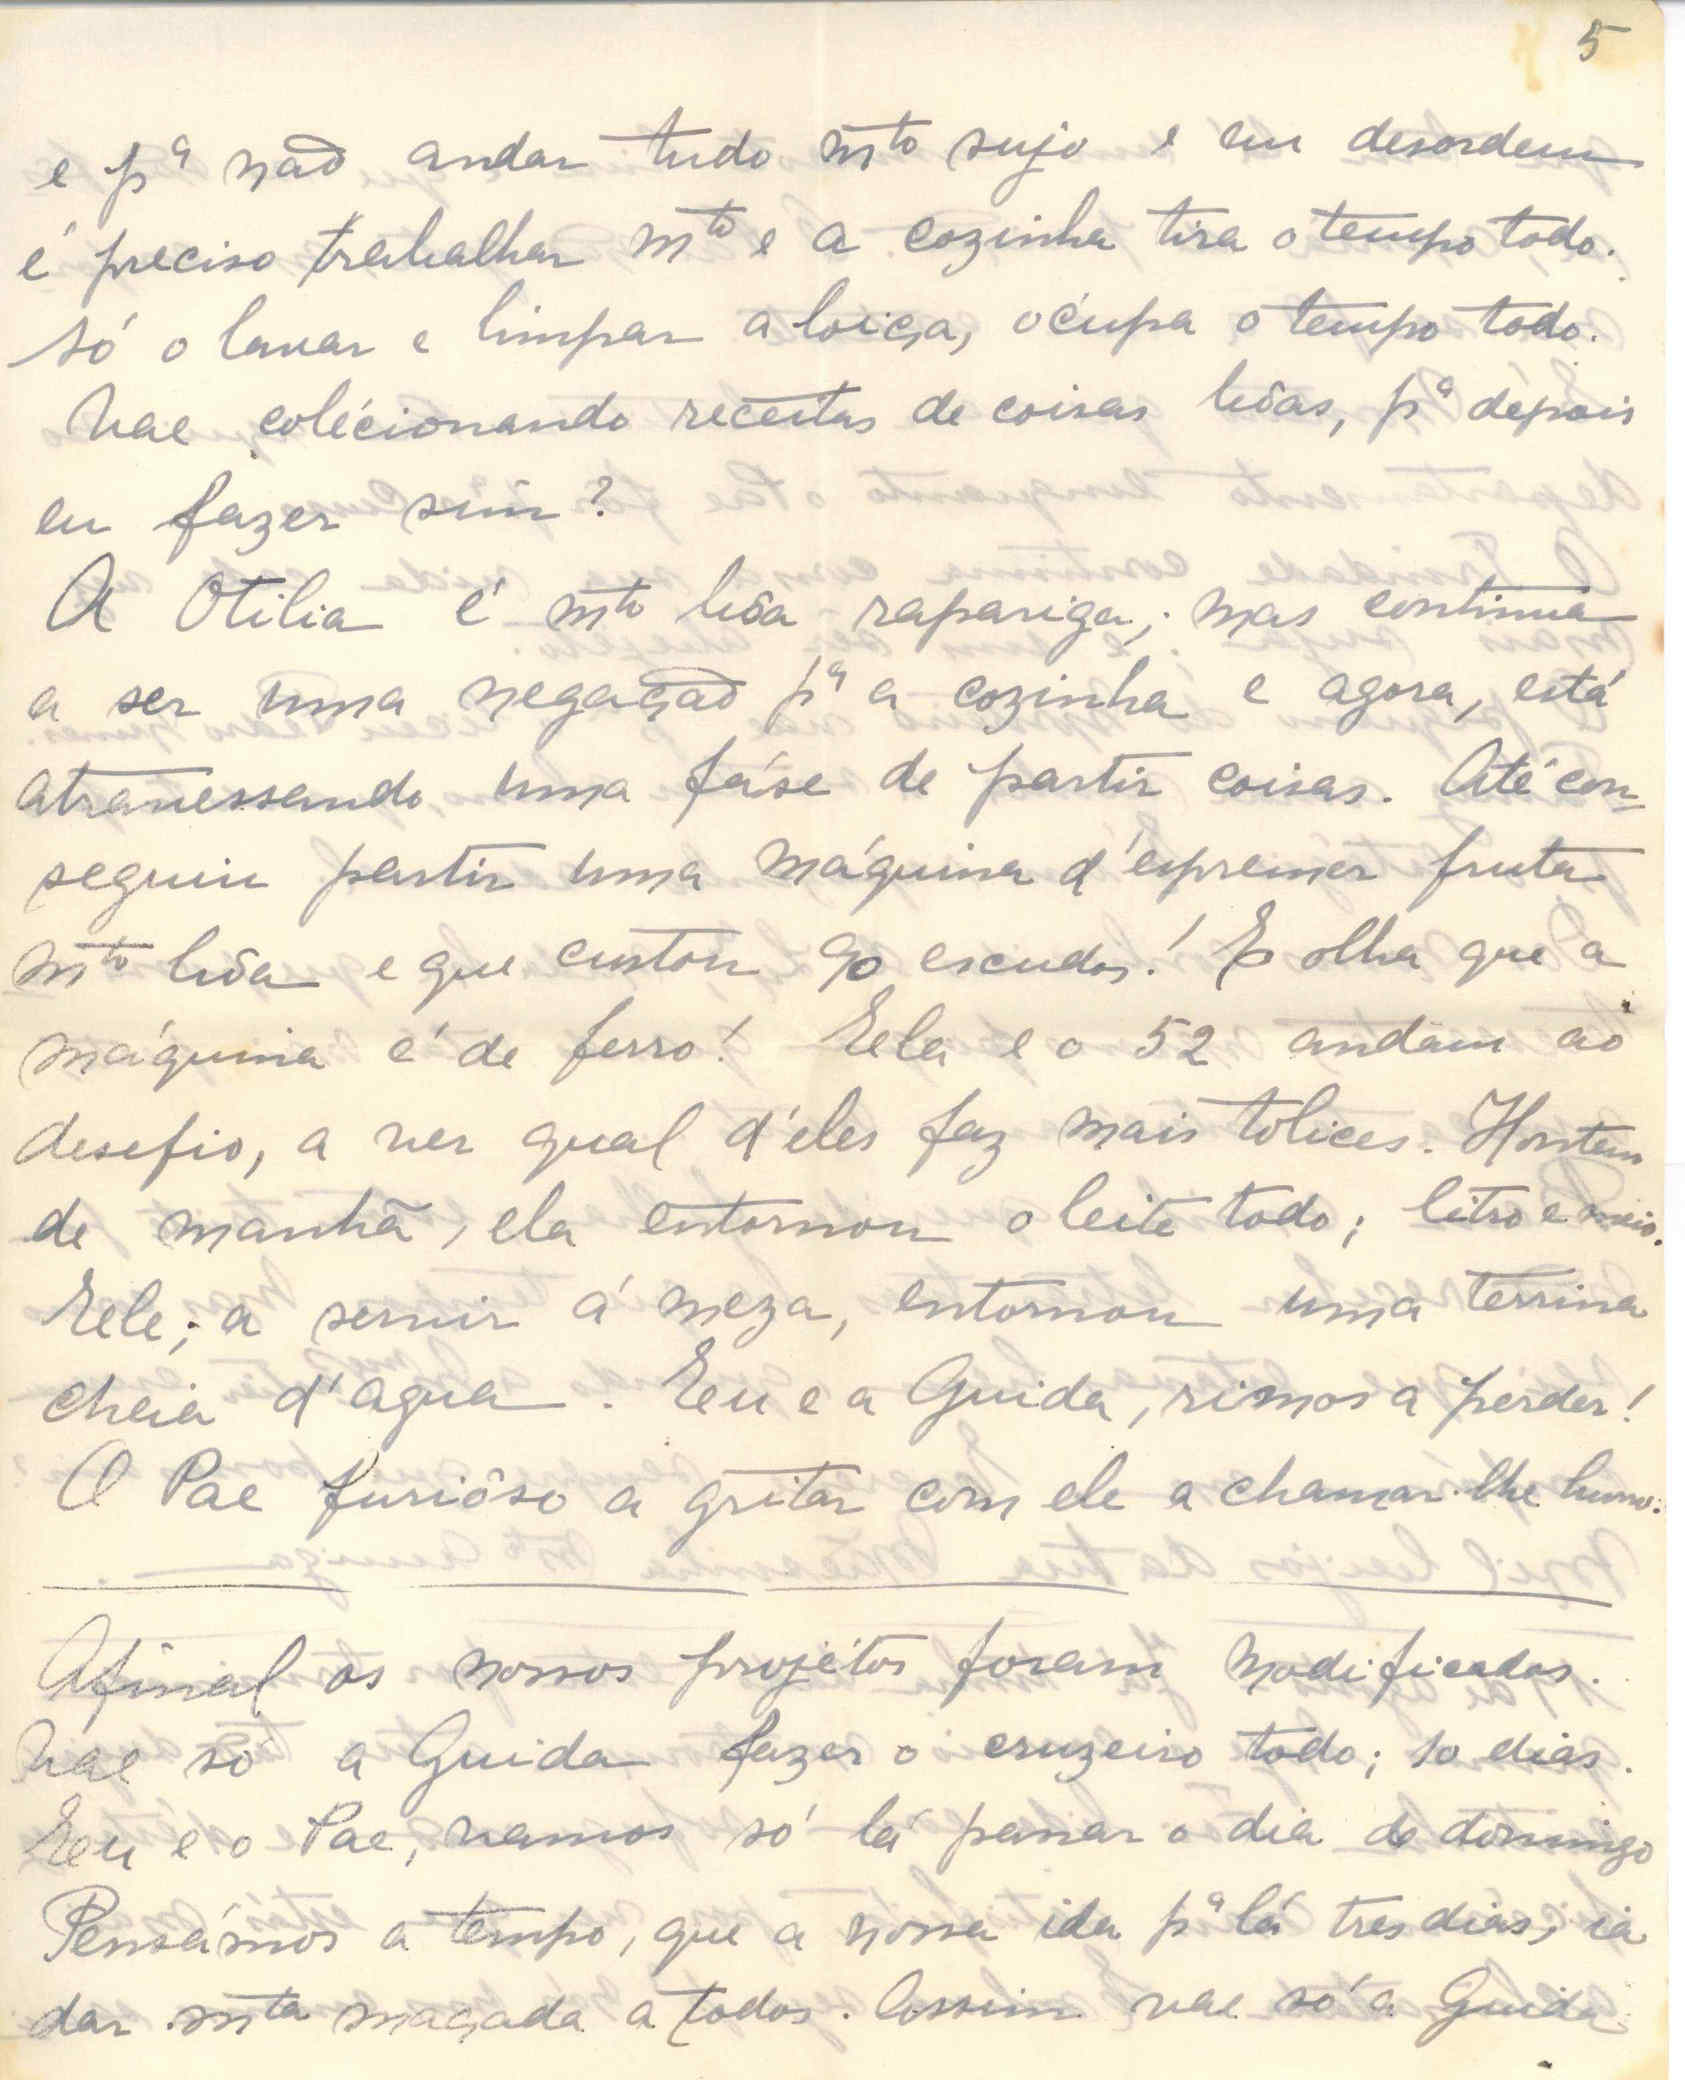 5
e pª não andar tudo mto sujo e em desordem
é preciso trabalhar mto e a cozinha tira o tempo todo.
Só o lavar e limpar a loiça, ocúpa o tempo todo.
Vae colécionando receitas de coisas bôas, pª depois
eu fazer sim?
A Otilia é mto bôa rapariga; mas continua
a ser uma negação pª a cozinha e agora, está
atravessando uma fáse de partir coisas. Até con-
seguiu partir uma máquina d'espremer fruta
mto bôa e que custou 90 escudos! E olha que a
máquina é de ferro! Ela e o 52 andam ao
desafio, a ver qual d'eles faz mais tolices. Hontem
de manhã, ela entornou o leite todo; litro e meio.
Ele; a servir á meza, entornou uma terrina
cheia d'agua. Eu e a Guida, rimos a perder!
O Pae furiôso a gritar com ele a chamar-lhe burro.
Afinal os nossos projétos foram modificados.
Vae só a Guida fazer o cruzeiro todo; 10 dias.
Eu e o Pae, vamos só lá passar o dia de domingo
Pensámos a tempo, que a nossa ida pª lá tres dias, ia
dar mta maçada a todos. Assim vae só a Guida